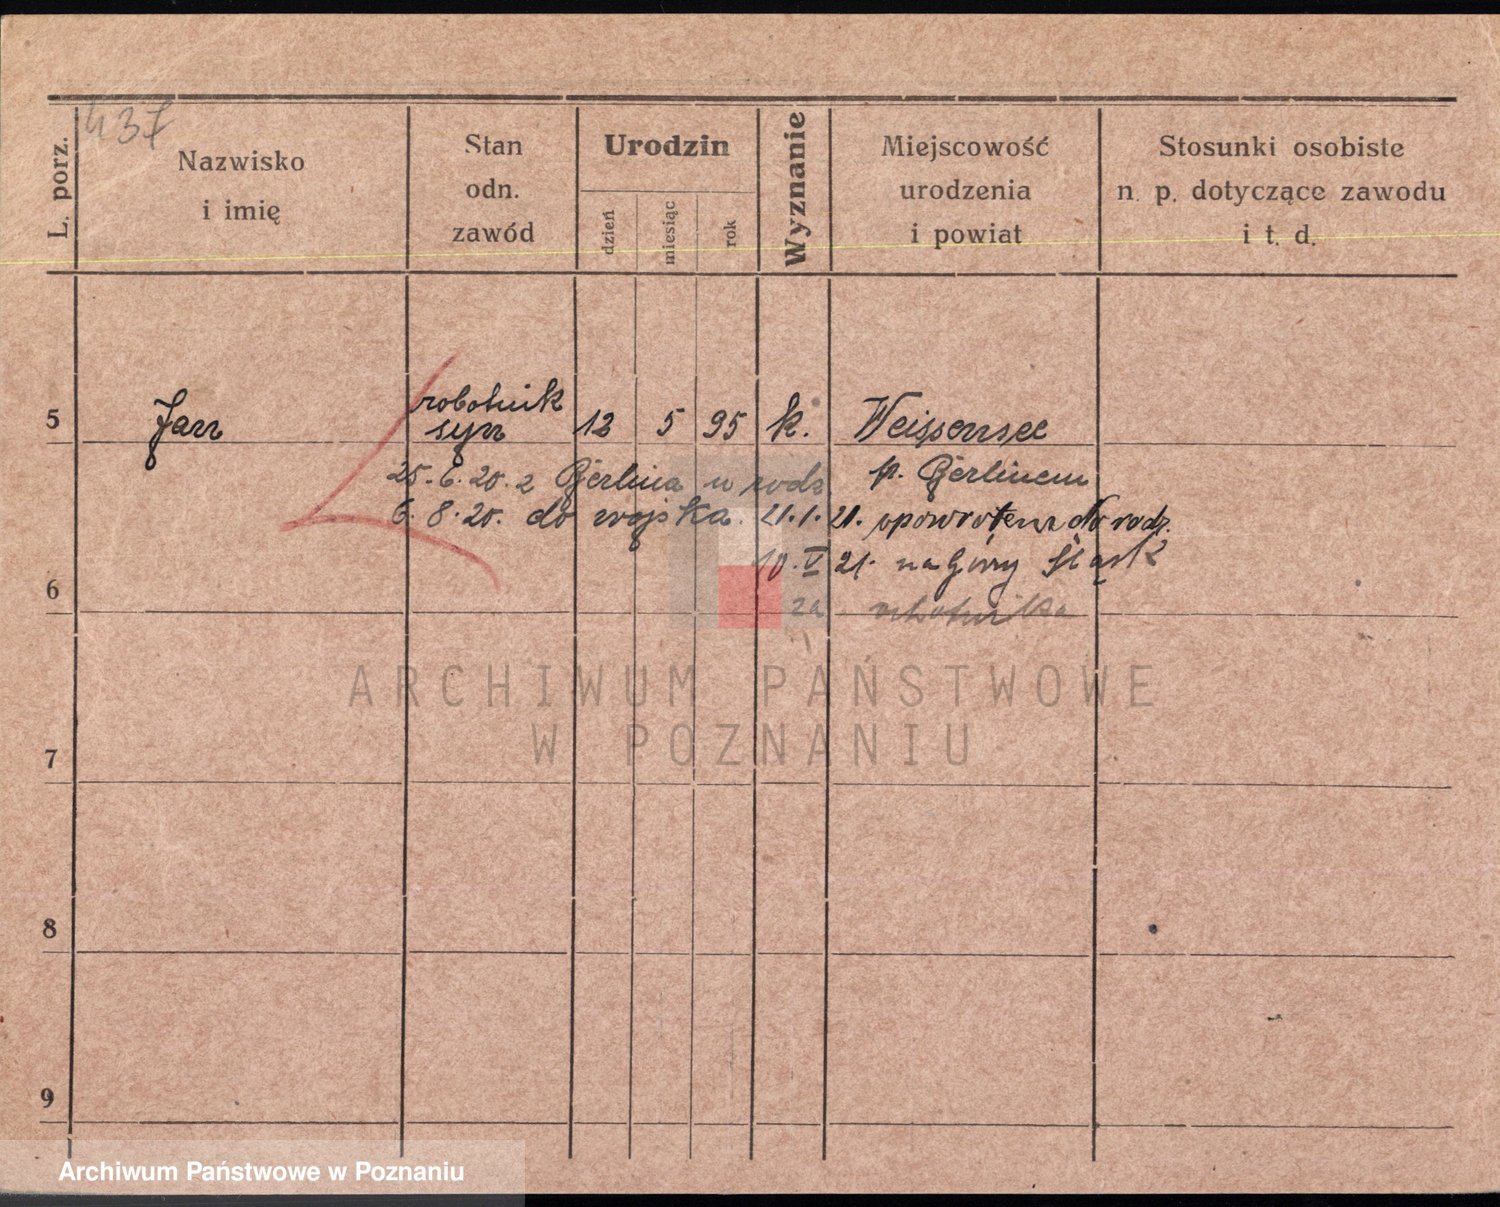 437
L. porz.
Nazwisko
i imię
Stan
odn.
zawód
Urodzin
dzień
miesiąc
rok
Wyznanie
Miejscowość
urodzenia
i powiat
Stosunki osobiste
n. p. dotyczące zawodu
i t. d.
robotnik
5 Jan syn 12 5 95 k. Weissensee
25.6.20. z Berlina u rodz p. Berlinem
6.8.20. do wojska. 21.1.21. spowrotem do rodz.
10.V 21. na Górny Śląsk
6 za robotnika
ARCHIWUM PAŃSTWOWE
W POZNANIU
7
8
9
Archiwum Państwowe w Poznaniu